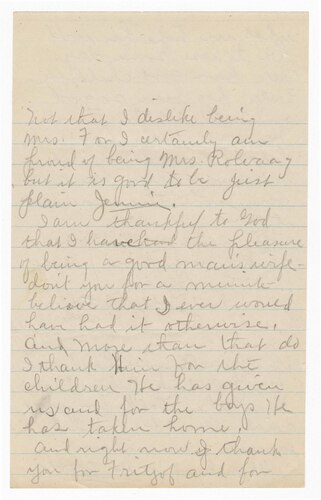 Not that I dislike being
Mrs. For I certainly am
proud of being Mrs. Rolvaag
but it is good to be just
plain Jennie.
I am thankful to God
that I have had the pleasure
of being a good man's wife-
don't you for a minute
believe that I ever would
have had it otherwise.
And more than that do
I thank Him for the
children He has given
us and for the boys He
has taken home.
And right now I thank
you for Fritzof and for